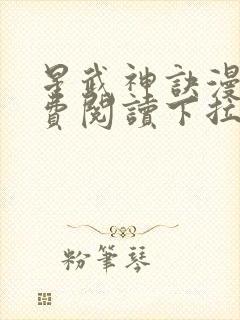 星武神訣漫
費閱讀下拉
粉筆琴